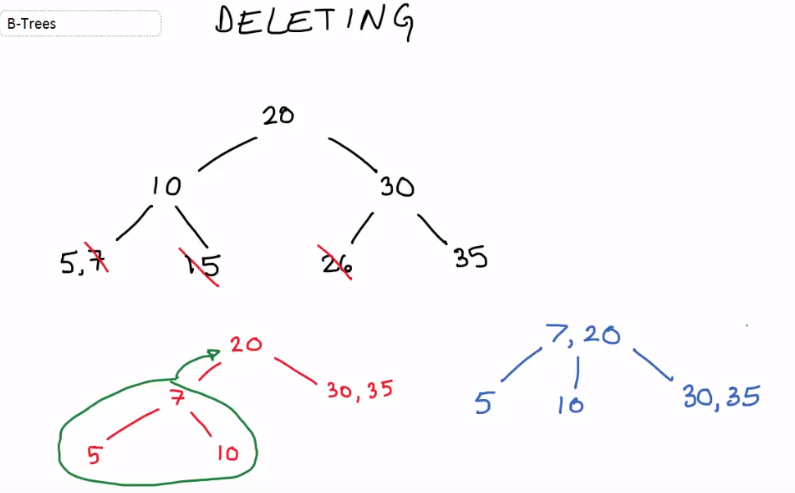 B-Trees
DELETING
20
10 30
5,7 15 26 35
20
7 30,35
5 10
7,20
5 10 30,35